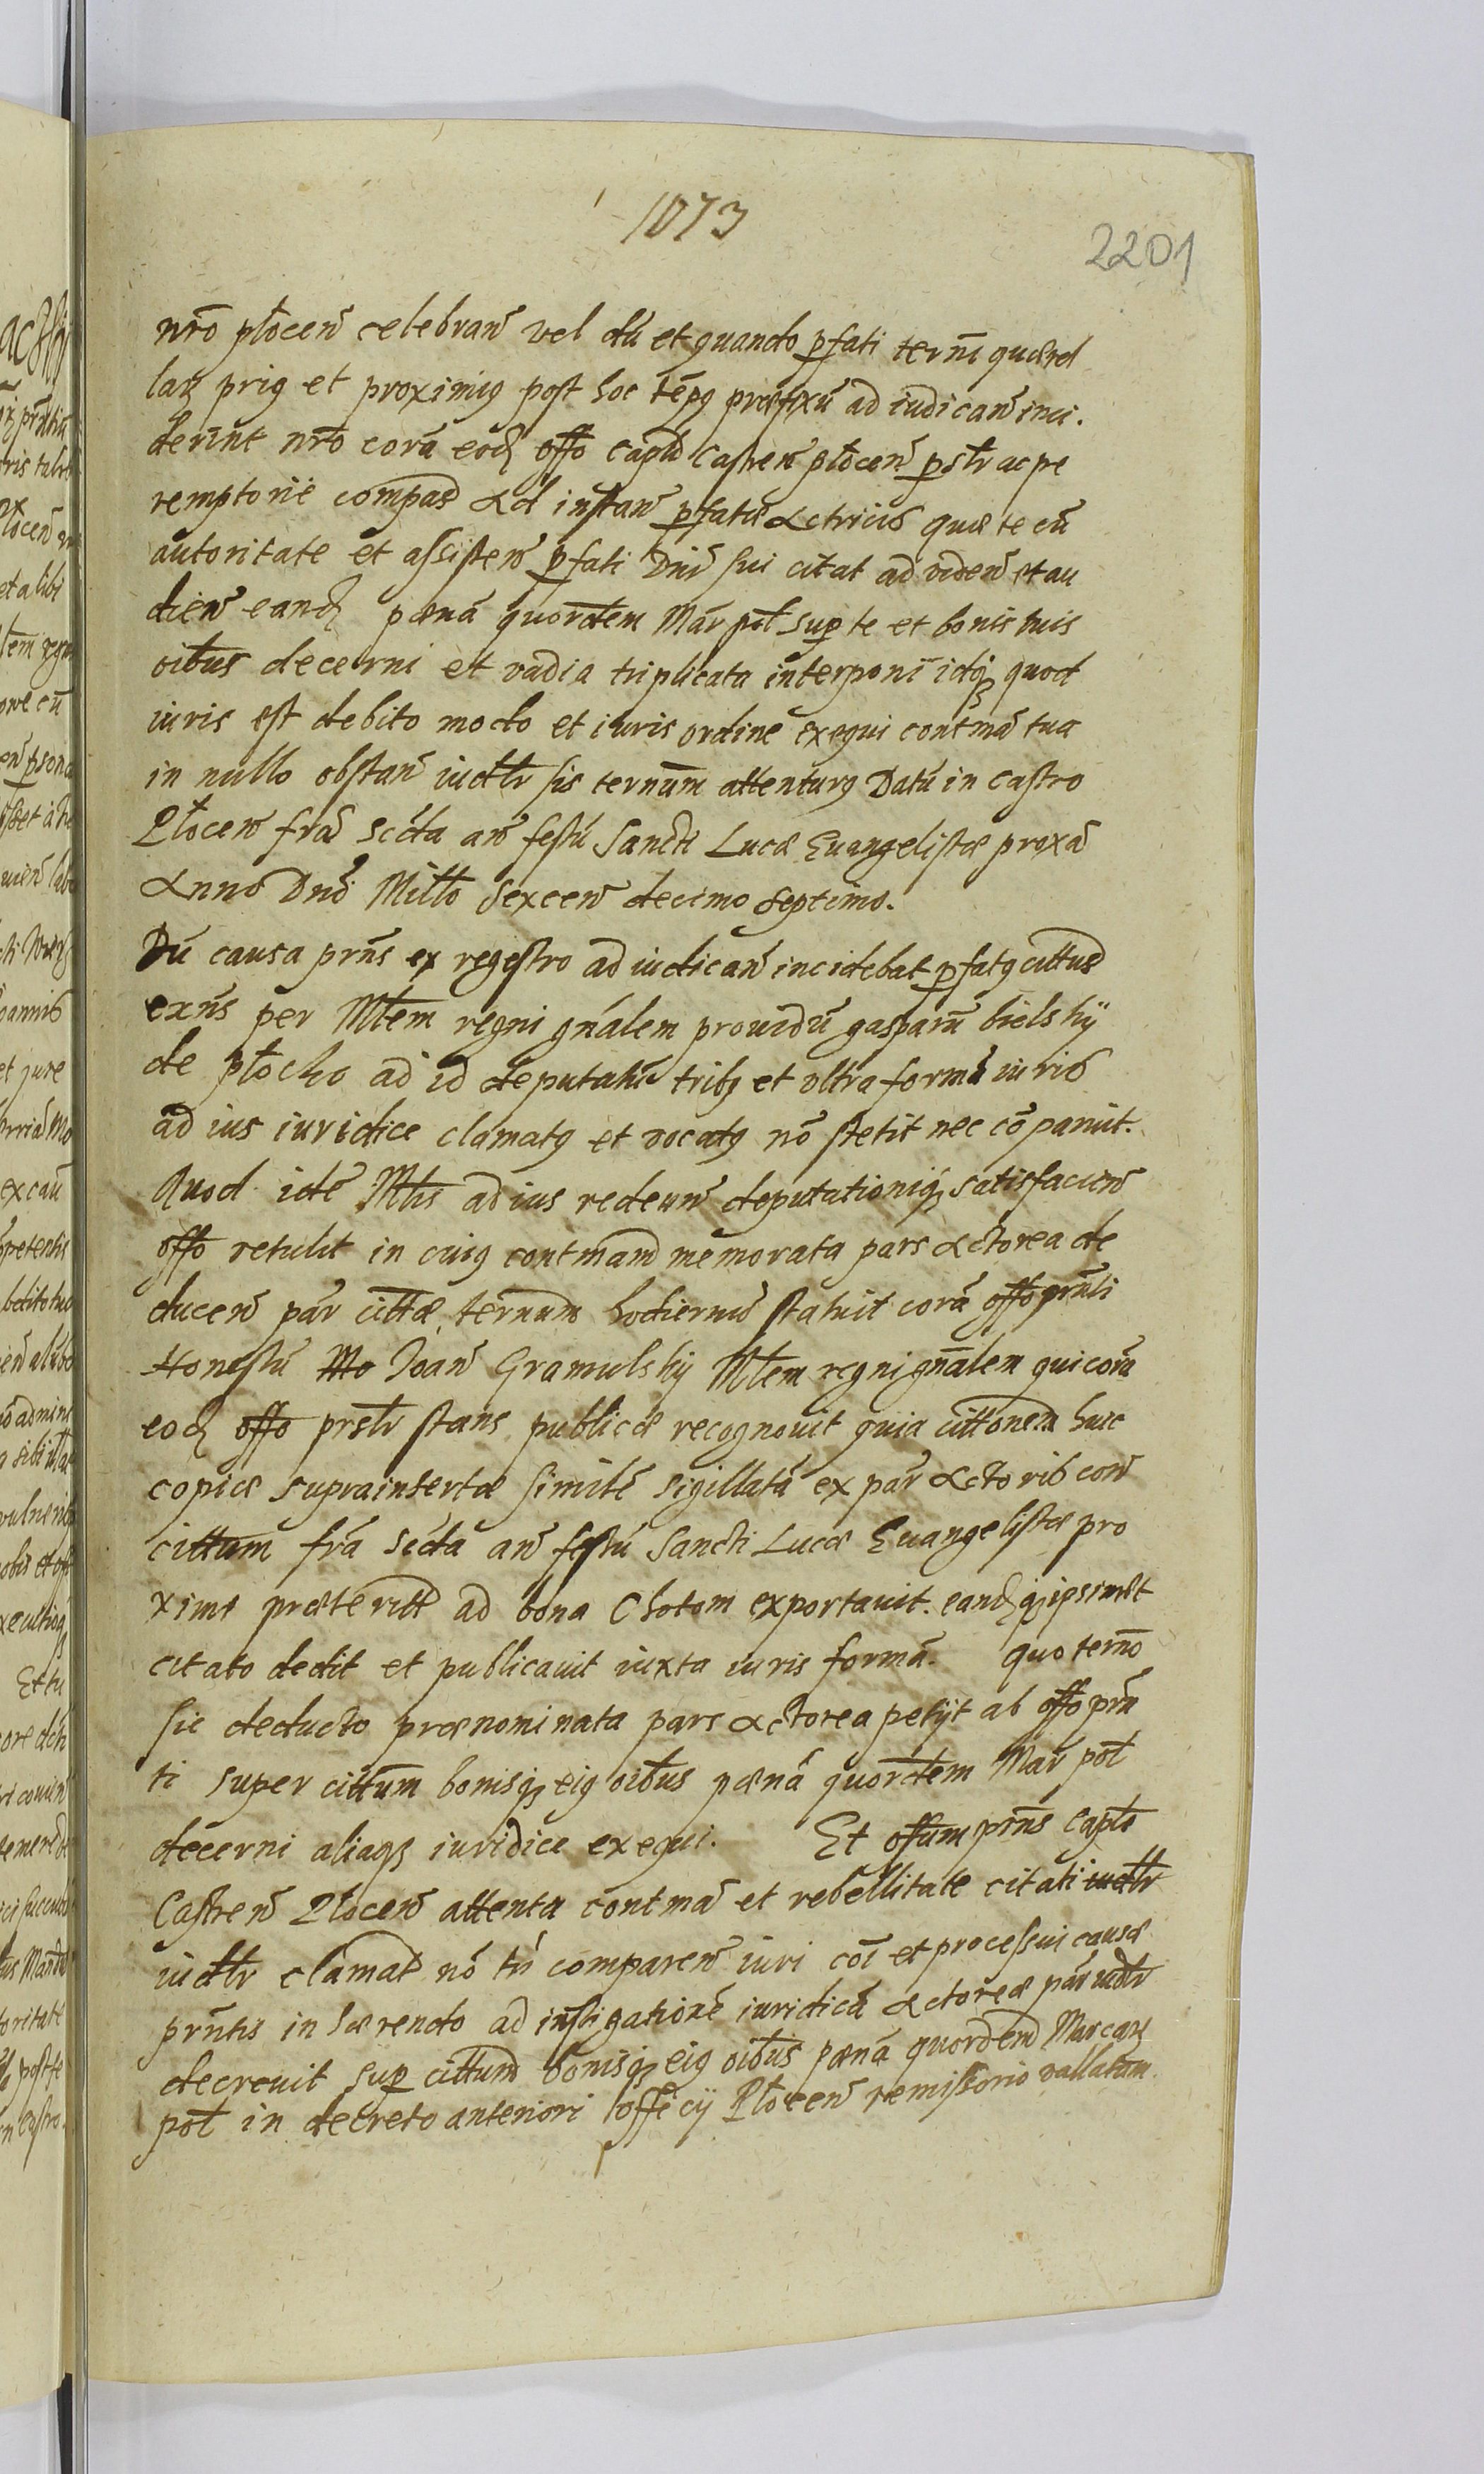 1073
2201
nr̃o płocen̄ celebran̄ vel dū et quando p̱fati term̄i quærel
laꝝ priꝯ et proximiꝯ post hoc tēpꝯ præfixū ad iudican̄ inci.
derint nr̃o corā eod̃ offo capło Castren̄ płocen̄ p̱sl̃r ac pe
remptorie compas̃ ad instan̄ p̱fatæ Actricis quæ te cū
autoritate et assisten̄ p̱fati Dn̄i sui citat ad viden̄ et au
dien̄ eand̃ pœnā quordem Mar̄ pol̃ super te et bonis tuis
oībus decerni et vadia triplicata interponi idqꝫ quod
iuris est debito modo et iuris ordine exequi contmā tua
in nullo obstan̄ iudlr sis ternūm attenturꝯ Datū in castro
Płocen̄ fr̃a Scda an̄ festū Sancti Lucæ Euangelistæ proxā
Anno Dn̄i Millo Sexcen̄ decimo septimo.
Dū causa prn̄s ex regestro ad iudican̄ incidebat p̱fatꝯ cittus
exn̄s per Mlem regni gn̄alem prouidū gasparū bielskÿ
de płocko ad id deputatū tribꝯ et vltra formā iuris
ad ius iuridice clamatꝯ et vocatꝯ nō stetit nec cōparuit.
Quod idē Mlis ad ius redeun̄ deputationiqꝫ satisfacien̄
offo retulit in cuiꝯ contmam memorata pars Actorea de
ducen̄ par̄ cittæ, ternum hodiernū statuit corā offo prn̄ti
Honestū Mo Joan̄ Gramulskÿ Mlem regni gn̄alem qui corā
eod̃ offo prsl̃r stans publicæ recognouit quia cittonem huic
copiæ suprainsertæ similē sigillatā ex par̄ Actoris con̄
cittum fr̃a Scda an̄ festū Sancti Lucæ Euangelistæ pro
xime præterit̃ ad bona Chotom exportauit. eand̃qꝫ ipsimet
citato dedit et publicauit iuxta iuris formā. quo tern̄o
sic deducto prænominata pars Actorea petÿt ab offo prn̄
ti super cittum bonisqꝫ eiꝯ oībus pœnā quordem Mar̄ pol̃
decerni aliaqꝫ iuridice exequi. Et offum prn̄s capło
Castren̄ Płocen̄ attenta contmā et rebellitate citati iudlr
iudlr clamat̃ nō tn̄ comparen̄ iuri cōi et processui causæ
prn̄tis in hærendo ad instigationē iuridicā Actoreæ par̄ iudlr
decreuit sup̱ cittum bonisqꝫ eiꝯ oībus pœnā quordem Marcaꝝ
pol̃ in decreto anteriori officÿ Płocen̄ remissorio vallatam